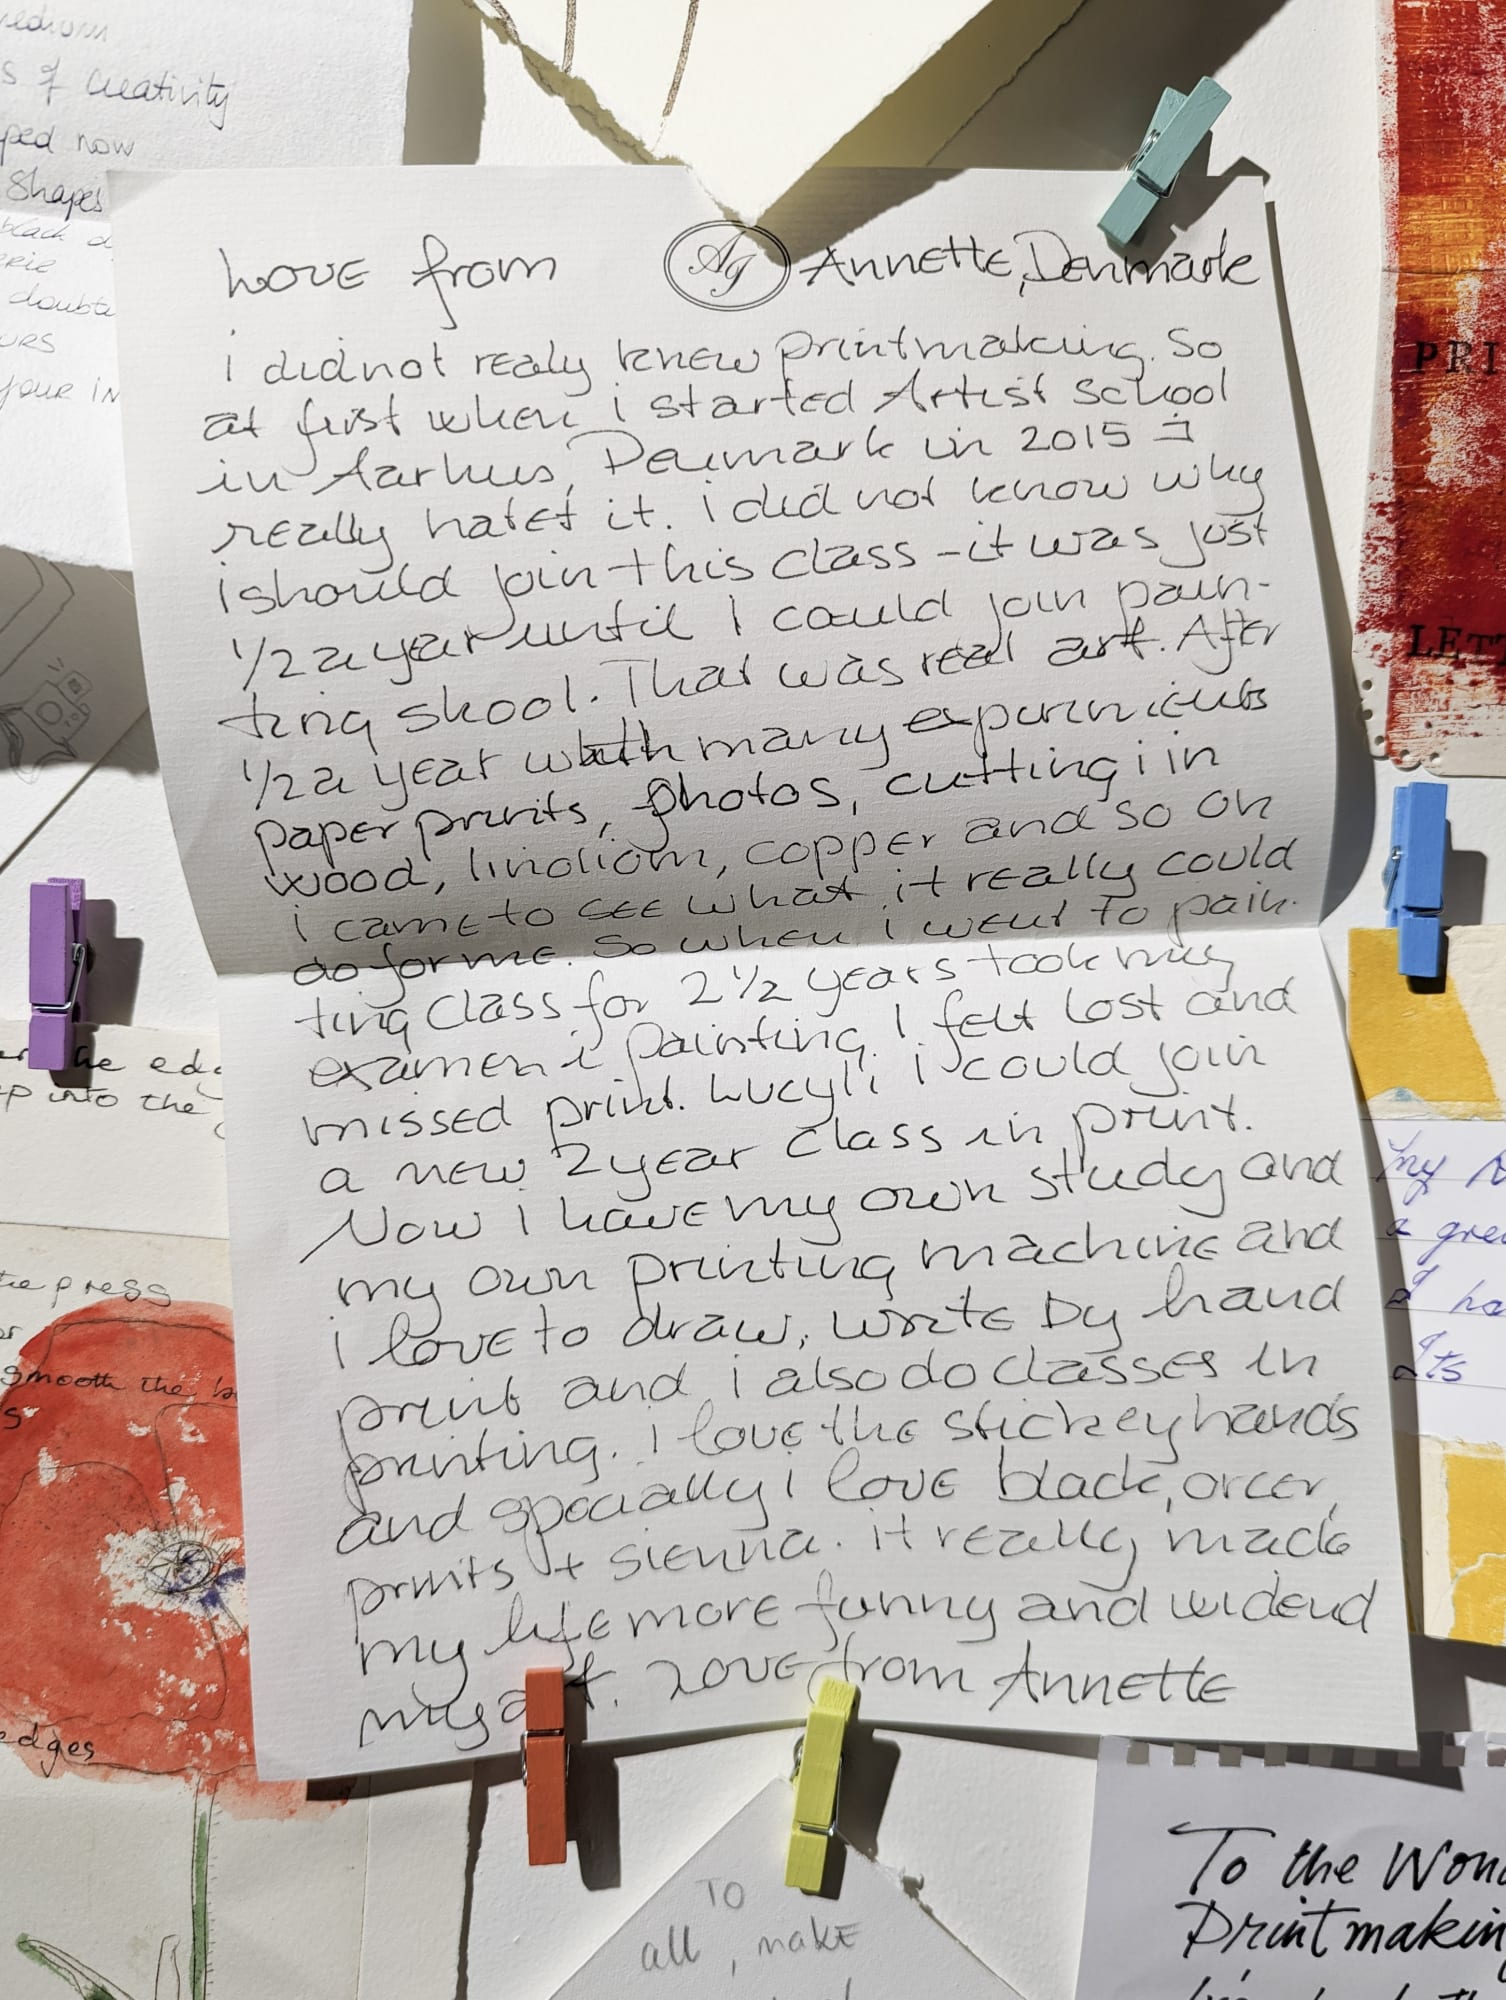 edium
s of creativity
ped now
Shapes
black d
erie
doubts
URS
your IN
Love from AG Annette, Denmark
i did not realy knew printmaking. So
at first when i started Artist School
in Aarhus, Denmark in 2015 I
really hatet it. i did not know why
i should join this class - it was just
1/2 a year until I could join pain-
ting skool. That was real art. After
1/2 a year with many experiments
paper prints, photos, cutting i in
wood, linoliom, copper and so on
i came to see what it really could
do for me. So when i went to pain-
ting class for 2 1/2 years took my
examen i painting. I felt lost and
missed print. Lucyli i could join
a new 2 year class in print.
Now i have my own study and
my own printing machine and
i love to draw, write by hand
print and i also do classes in
printing. i love the stickey hands
and specially i love black, orcer,
prints + sienna. it really made
my life more funny and widend
my art. Love from Annette
PRI
LETT
the edg
p into the
the press
smooth the b
s
edges
my
a gre
I ha
Its
To
all, make
To the Won
Printmakin